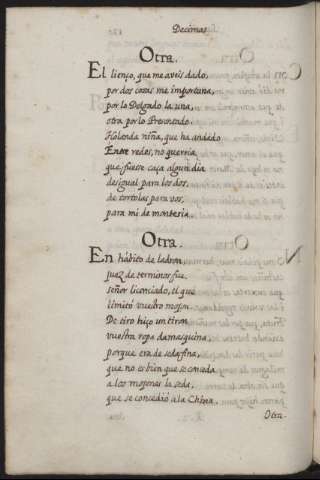 Decimas
Otra.
El lienço, que me aveis dado,
por dos cosas me importuna,
por lo Delgado la una,
otra por lo Presentado.
Holanda niña, que ha andado
Entre redes, no querria,
que fuesse caça algun dia
desigual para los dos,
de tortolas para vos,
para mi de monteria.
Otra.
En hábito de ladron,
juez de terminos fue
señor licenciado, el que
limitó vuestro
De tiro hiço un tiron
vuestra ropa damasquina,
porque era de seda fina,
que no es bien que se conceda
a los la seda,
que se concedió a la China.
Otra